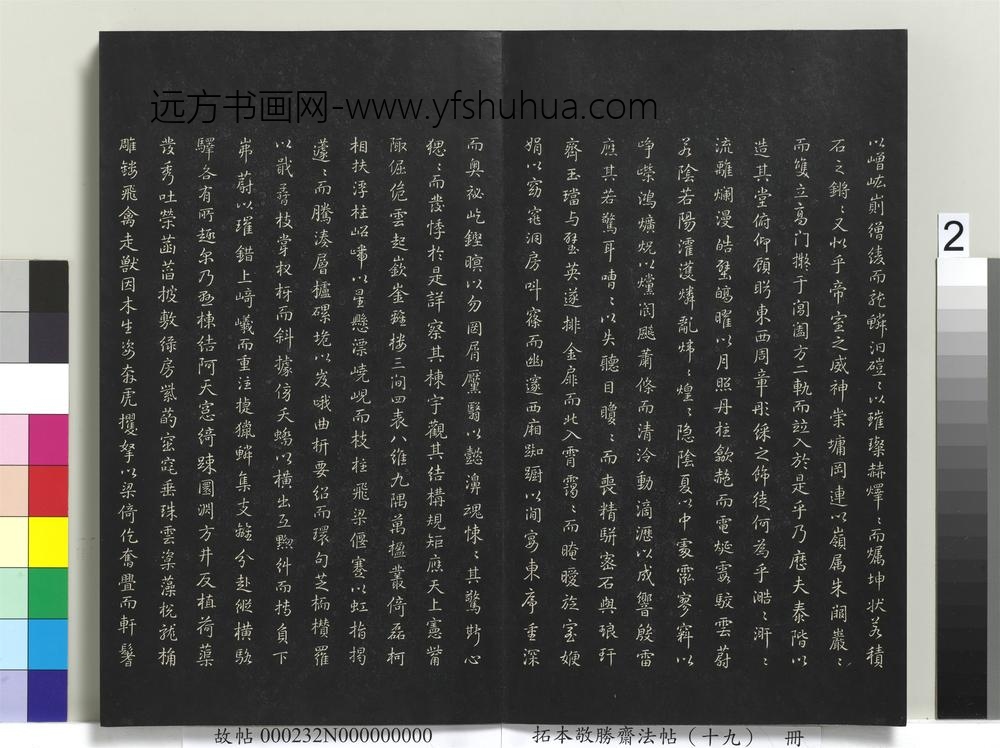 远方书画网-www.yfshuhua.com
以嶒峵崱繒綾而龍鱗汩磑〻以璀璨赫燡〻而爥坤狀若積
石之鏘〻又似乎帝室之威神崇墉岡連以嶺属朱闕巖〻
而雙立高門擬于閶闔方二軌而竝入於是乎乃歷夫泰階以
造其堂俯仰顧眄東西周章彤綵之飾徒何為乎澔〻涆〻
流離爛漫皓壁皜曜以月照丹柱歙赩而電烻霞駮雲蔚
若陰若陽瀖濩燐亂煒〻煌〻隐陰夏以中處霐寥窲以
崢嶸鴻爌炾以爣閬飋蕭條而清泠動滴瀝以成響殷雷
應其若驚耳嘈〻以失聽目矎〻而喪精駢密石與琅玕
齊玉璫与璧英遂排金扉而北入霄靄〻而晻曖旋室㛹
娟以窈窕洞房叫窱而幽邃西廂踟躕以閒宴東序重深
而奥祕屹鏗瞑以勿罔屑黶翳以懿濞魂悚〻其驚斯心
㥓〻而發悸於是詳察其棟宇觀其結構規矩應天上憲觜
陬倔佹雲起嶔崟離樓三间四表八維九隅萬楹叢倚磊砢
相扶浮柱岧嵽以星懸漂嶢峴而枝柱飛梁偃蹇以虹指揭
蘧〻而騰湊層櫨磥垝以岌峨曲枅要紹而環句芝栭欑羅
以戢孴枝掌杈枒而斜據傍夭蟜以橫出互黝糾而搏負下
岪蔚以璀錯上崎嶬而重注捷獵鱗集支離分赴縱橫駱
驛各有所趣尔乃懸棟结阿天窓綺疎圜淵方井反植荷蕖
發秀吐榮菡萏披敷綠房紫菂窋咤垂珠雲楶藻梲龍桷
雕鏤飛禽走獸因木生姿奔虎攫拏以梁倚仡奮亹而軒鬐
2
故帖 000232N000000000
拓本敬勝齋法帖（十九） 冊